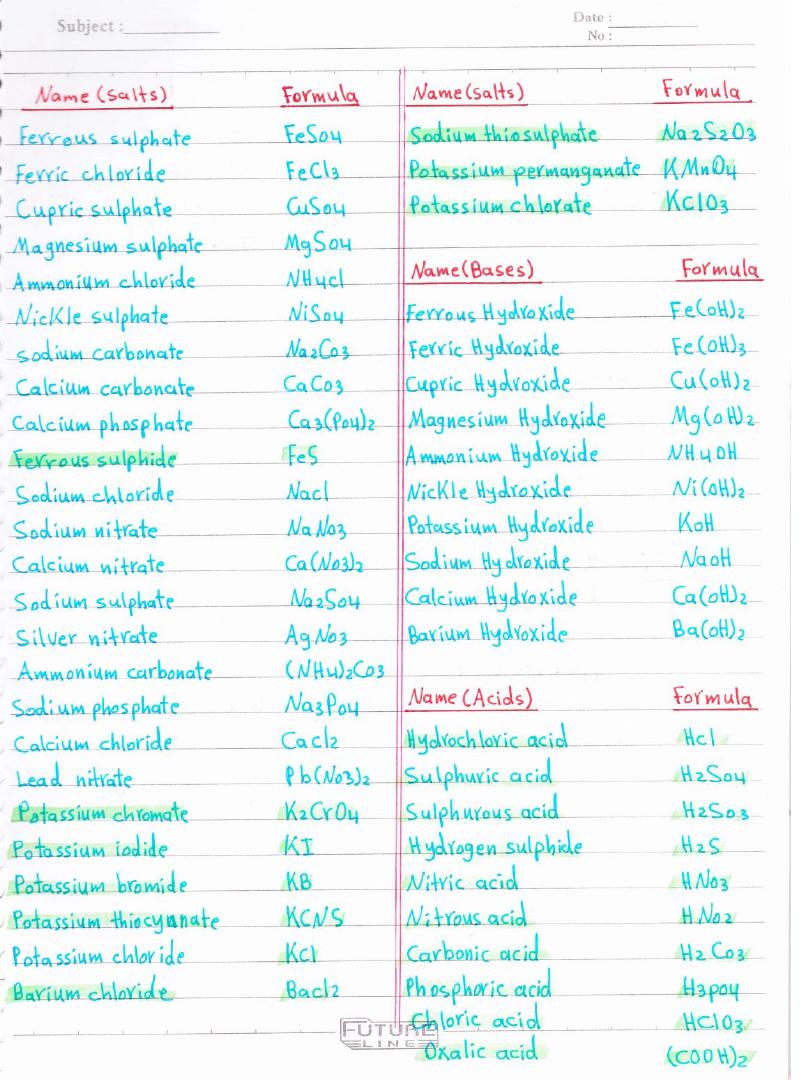 Subject :
Date :
No :
Name (salts) Formula
Ferrous sulphate FeSo4
Ferric chloride FeCl3
Cupric sulphate CuSo4
Magnesium sulphate MgSo4
Ammonium chloride NH4cl
Nickle sulphate NiSo4
sodium carbonate Na2Co3
Calcium carbonate CaCo3
Calcium phosphate Ca3(Po4)2
Ferrous sulphide FeS
Sodium chloride Nacl
Sodium nitrate NaNo3
Calcium nitrate Ca(No3)2
Sodium sulphate Na2So4
Silver nitrate AgNo3
Ammonium carbonate (NH4)2Co3
Sodium phosphate Na3Po4
Calcium chloride Cacl2
Lead nitrate Pb(No3)2
Potassium chromate K2CrO4
Potassium iodide KI
Potassium bromide KB
Potassium thiocyanate KCNS
Potassium chloride Kcl
Barium chloride Bacl2
Name(salts) Formula
Sodium thiosulphate Na2S2O3
Potassium permanganate KMnO4
Potassium chlorate KClO3
Name(Bases) Formula
Ferrous Hydroxide Fe(oH)2
Ferric Hydroxide Fe(OH)3
Cupric Hydroxide Cu(oH)2
Magnesium Hydroxide Mg(oH)2
Ammonium Hydroxide NH4OH
Nickle Hydroxide Ni(oH)2
Potassium Hydroxide KoH
Sodium Hydroxide NaoH
Calcium Hydroxide Ca(oH)2
Barium Hydroxide Ba(oH)2
Name (Acids) Formula
Hydrochloric acid Hcl
Sulphuric acid H2So4
Sulphurous acid H2So3
Hydrogen sulphide H2S
Nitric acid HNo3
Nitrous acid HNo2
Carbonic acid H2Co3
Phosphoric acid H3po4
Chloric acid HClO3
Oxalic acid (COOH)2
FUTURE
LINE